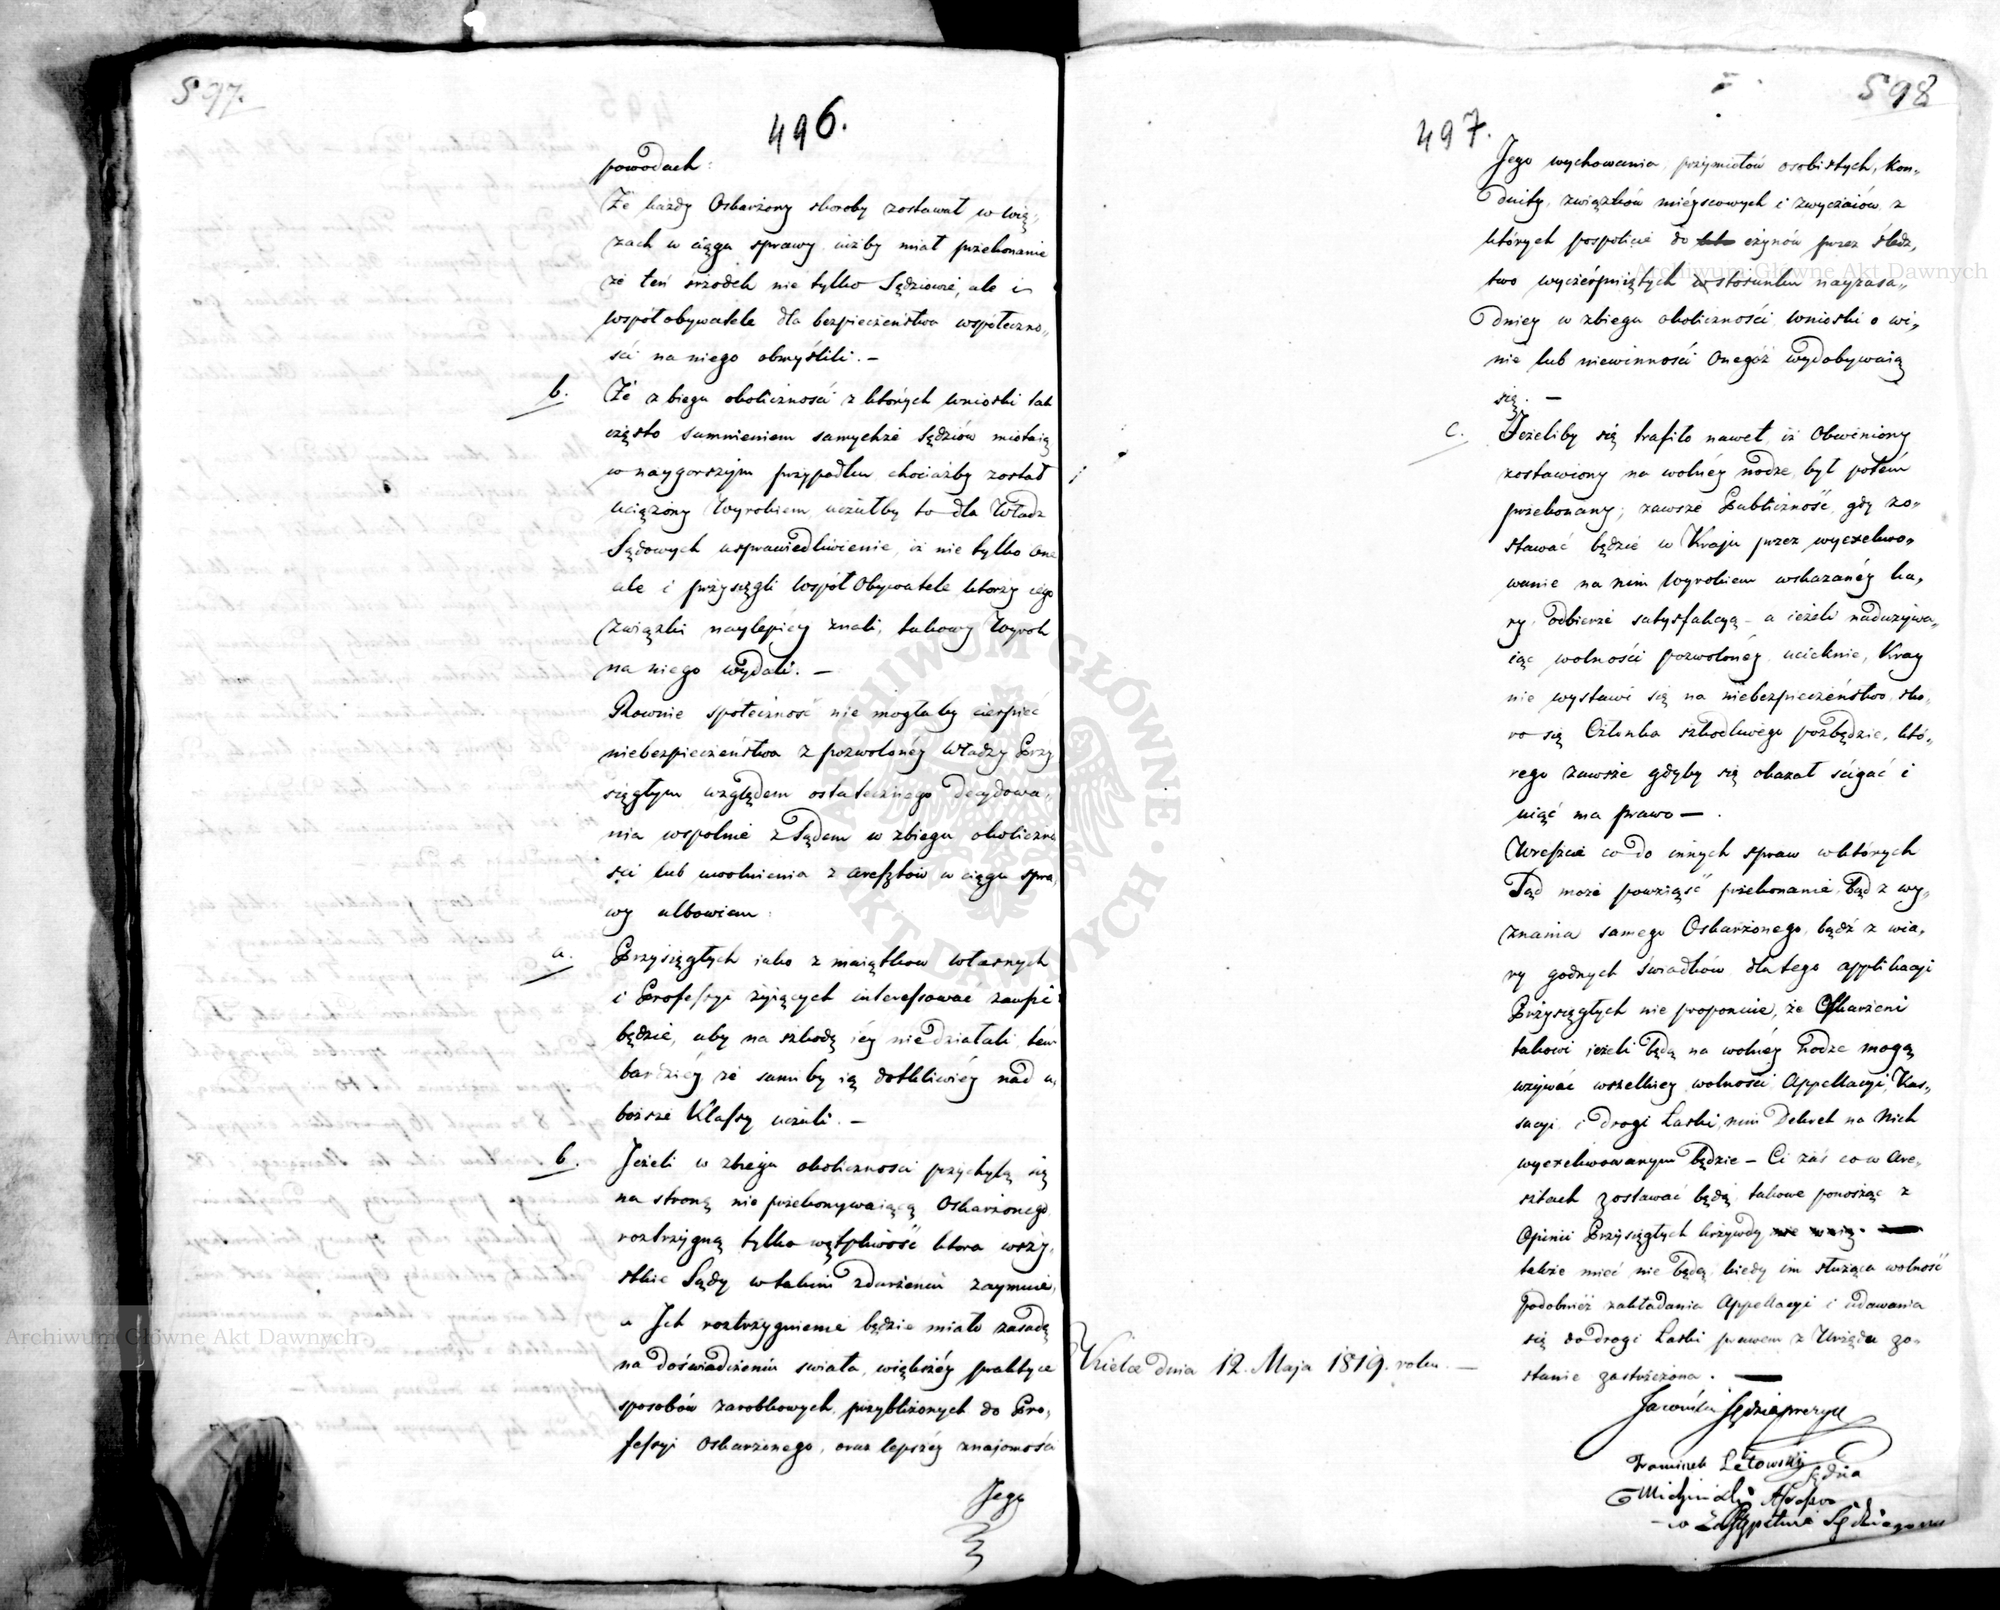 597.
496.
powodach:
Że każdy Oskarżony skoroby zostawał w wię„
zach w ciągu sprawy iużby miał przekonanie
że ten srzodek nie tylko Sędziowie, ale i
współobywatele dla bezpieczeństwa społeczno„
ści na niego obmyślili. —
b. Że z biegu okoliczności z których wnioski tak
często sumnieniem samychże Sędziów miotaią
w naygorszym przypadku chociażby został
uciążony Wyrokiem uczułby to dla Władz
Sądowych usprawiedliwienie, iż nie tylko One
ale i przysięgli Współ Obywatele którzy iego
związki naylepiéy znali, takowy Wyrok
na niego wydali. —
Rownie społeczność nie mogłaby cierpieć
niebezpieczeństwa z pozwolonéy władzy Przy
sięgłym względem ostatecznego decydowa„
nia wspólnie z Sądem w zbiegu okoliczno
ści lub uwolnienia z aresztów w ciągu spra„
wy albowiem:
a. Przysięgłych iako z maiątków własnych
i Professyi żyiących interessować zawsze
będzie, aby na szkodę iéy nie działali tém
bardziéy że sami by ią dotkliwiéy nad u„
boższe Klassy uczuli. —
b. Jeżeli w zbiegu okoliczności przychylą się
na stronę nie przekonywaiącą Oskarżonego
roztrzygną tylko wątpliwość która wszy„
stkie Sądy w takim zdarzeniu zaymuie,
a Ich roztrzygnienie będzie miało zasadę
na doświadczeniu swiata, większéy praktyce
sposobów zarobkowych, przybliżonych do Pro„
fessyi Oskarżonego, oraz lepszéy znajomości
Jego
598
497.
Jego wychowania, przymiotów osobistych, kon„
duity, związków mieyscowych i zwyczaiów, z
których pospolicie do czynów przez śledz„
two wyczerpniętych w stosunku nayzasa„
dniey w zbiegu okoliczności wnioski o wi„
nie lub niewinności Onegoż wydobywaią
się. —
c. Jeżeliby się trafiło nawet, iż Obwiniony
zostawiony na wolnéy nodze, był potém
przekonany; zawsze Publiczność, gdy zo„
stawać będzie w Kraju przez wyexekwo„
wanie na nim Wyrokiem wskazanéy ka„
ry, odbierze satysfakcyą — a ieżeli nadużywa„
iąc wolności pozwolonéy ucieknie, Kray
nie wystawi się na niebezpieczeństwo sko„
ro się Członka szkodliwego pozbędzie, któ„
rego zawsze gdyby się okazał ścigać i
uiąć ma prawo —.
Wreszcie co do innych spraw w których
Sąd może powziąść przekonanie, bądź z wy„
znania samego Oskarżonego, bądź z wia„
ry godnych świadków dla tego applikacyi
Przysięgłych nie proponuie, że Oskarżeni
takowi ieżeli będą na wolnéy nodze mogą
używać wszelkiey wolności Appellacyi, Kas„
sacyi i drogi Łaski, nim Dekret na Nich
wyexekwowanym będzie — Ci zaś co w Are„
sztach zostawać będą, takowe ponosząc z
Opinii Przysięgłych krzywdy
także mieć nie będą, kiedy im służąca wolność
podobnież zakładania Appellacyi i udawania
się do drogi Łaski prawem z Urzędu zo„
stanie zastrzeżona. —
Kielce dnia 12. Maja 1819. roku. —
Sędzia prezyd
Franciszek Łętowski Sędzia
w Zastępstwie Sędziego
Archiwum Główne Akt Dawnych
Archiwum Główne Akt Dawnych
ARCHIWUM GŁÓWNE AKT DAWNYCH